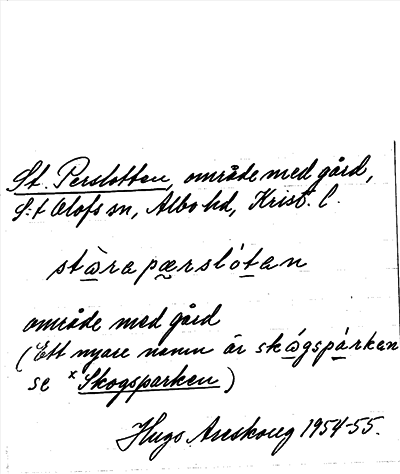 St. Perslotten, område med gård,
S:t Olofs sn, Albo hd, Krist. l.
stὼra pærslótan
område med gård
(Ett nyare namn är skώgspárken
se ˣSkogsparken)
Hugo Areskoug 1954-55.